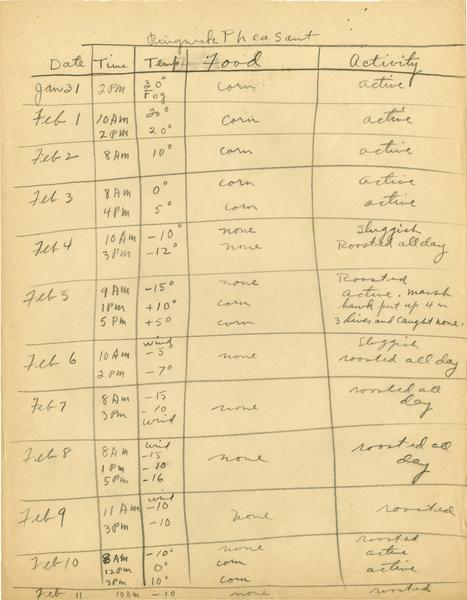 Ringneck Pheasant
Date Time Temp Food Activity
Jan 31 2 PM 30° corn active
Fog
Feb 1 10 AM 20° corn active
2 PM 20°
Feb 2 8 AM 10° corn active
corn active
Feb 3 8 AM 0°
4 PM 5° corn active
Feb 4 10 AM -10° none Sluggish
3 PM -12° none Roosted all day
Feb 5 9 AM -15° none Roosted
1 PM +10° corn active. marsh
hawk put up 4 in
5 PM +5° corn 3 dives and caught none.
wind Sluggish
Feb 6 10 AM -5 none roosted all day
2 PM -7°
Feb 7 8 AM -15 roosted all
3 PM -10 none day
wind
Feb 8 8 AM wind roosted all
-15
1 PM -10 none day
5 PM -16
wind
Feb 9 11 AM -10 none roosted
3 PM -10
Feb 10 8 AM -10° none roosted
12 PM 0° corn active
3 PM 10° corn active
Feb 11 10 AM -10 none roosted